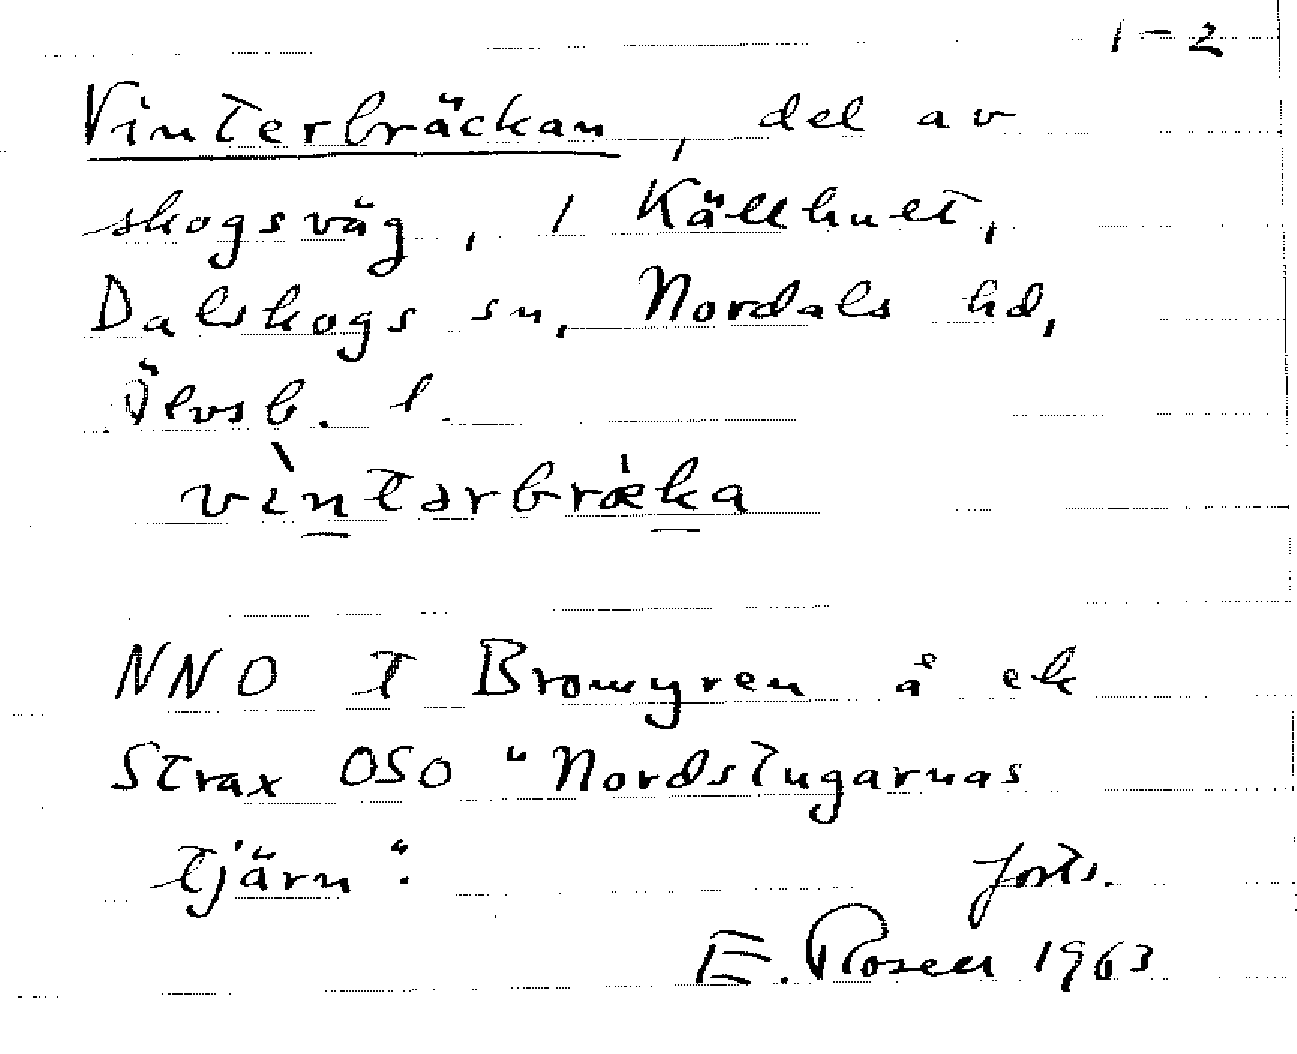 1-2
Vinterbräckan, del av
skogsväg, i Källhult,
Dalskogs sn, Nordals hd,
Älvsb. l.
vìntərbræ̀ka
NNO I Bromyren å ek
Strax OSO "Nordstugarnas
tjärn".
forts.
E. Rosell 1963